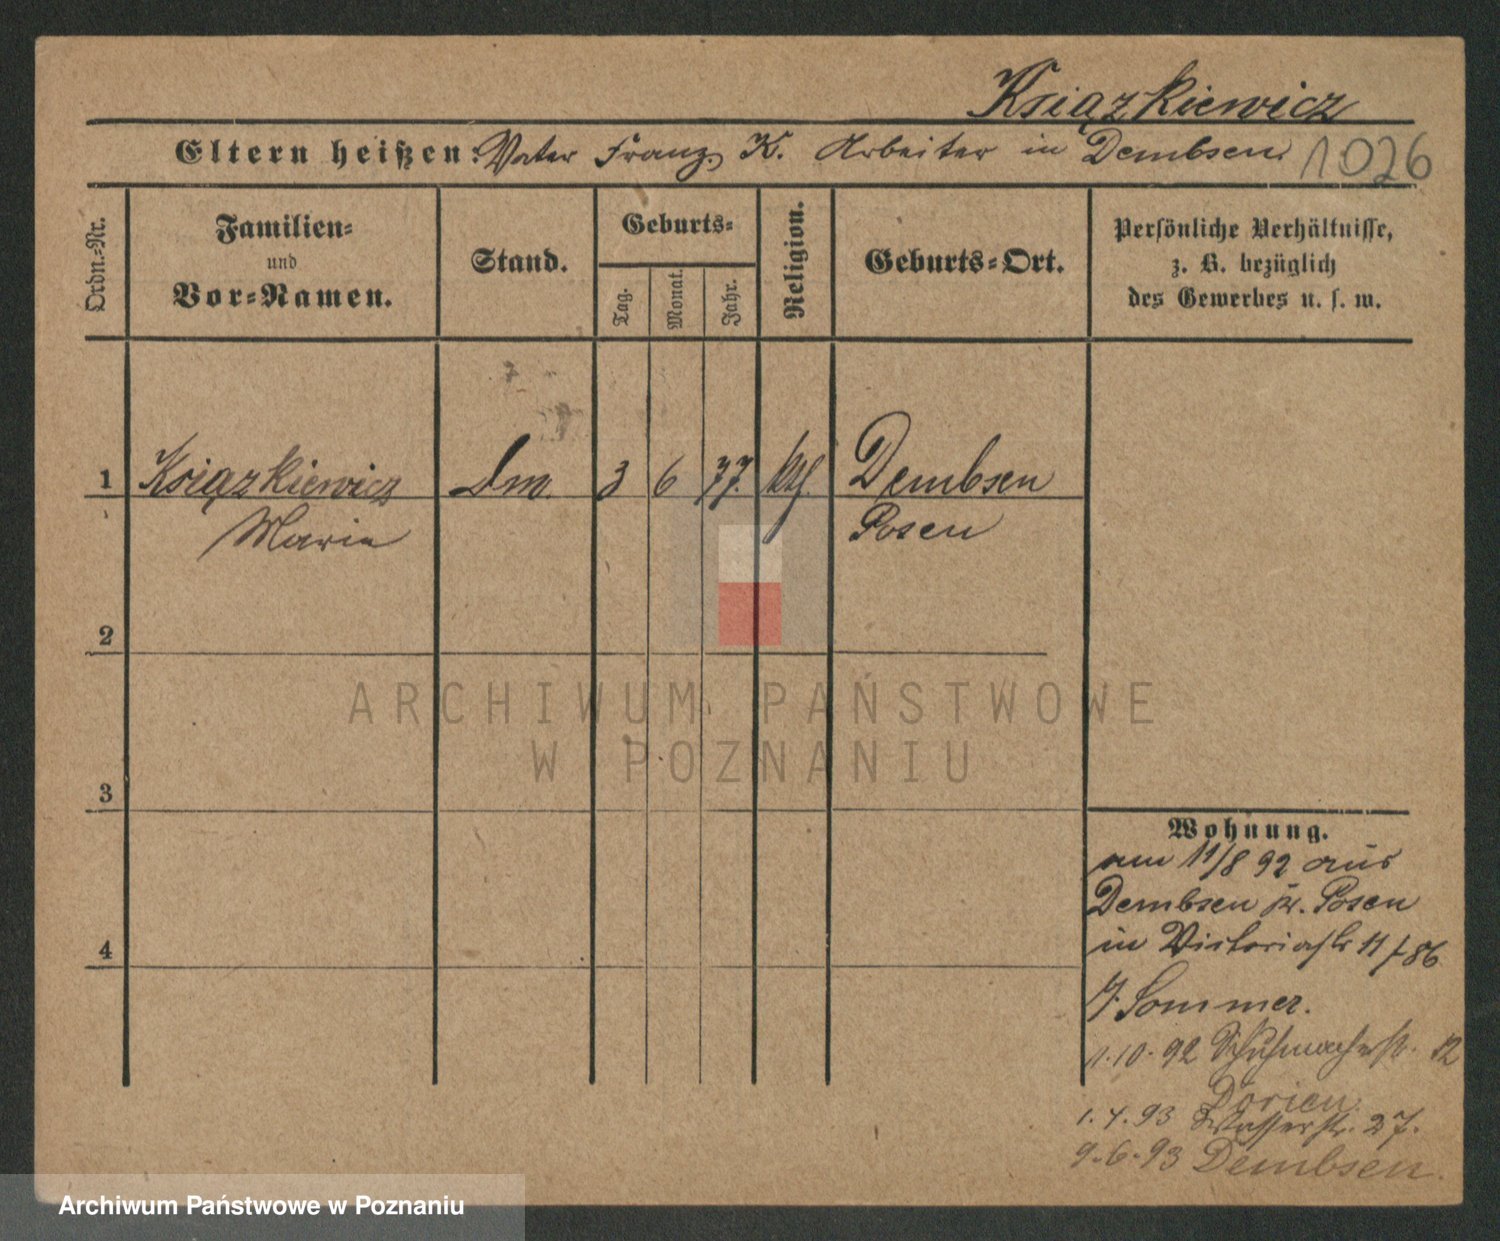 Książkiewicz
Eltern heißen: Vater Franz K. Arbeiter in Dembsen. 1026
Ordn.-Nr.
Familien-
und
Vor-Namen.
Stand.
Geburts-
Tag.
Monat.
Jahr.
Religion.
Geburts-Ort.
Persönliche Verhältnisse,
z. B. bezüglich
des Gewerbes u. s. w.
1 Książkiewicz Dm. 3 6 77. kth. Dembsen
Marie Posen
2
3
4
Wohnung.
am 11/8 92 aus
Dembsen Kr. Posen
in Victoriastr 11 /86
J. Sommer.
1.10.92 Schuhmacherstr. 12
Dorien
1.4.93 Wasserstr. 27.
9.6.93 Dembsen.
ARCHIWUM PAŃSTWOWE
W POZNANIU
Archiwum Państwowe w Poznaniu